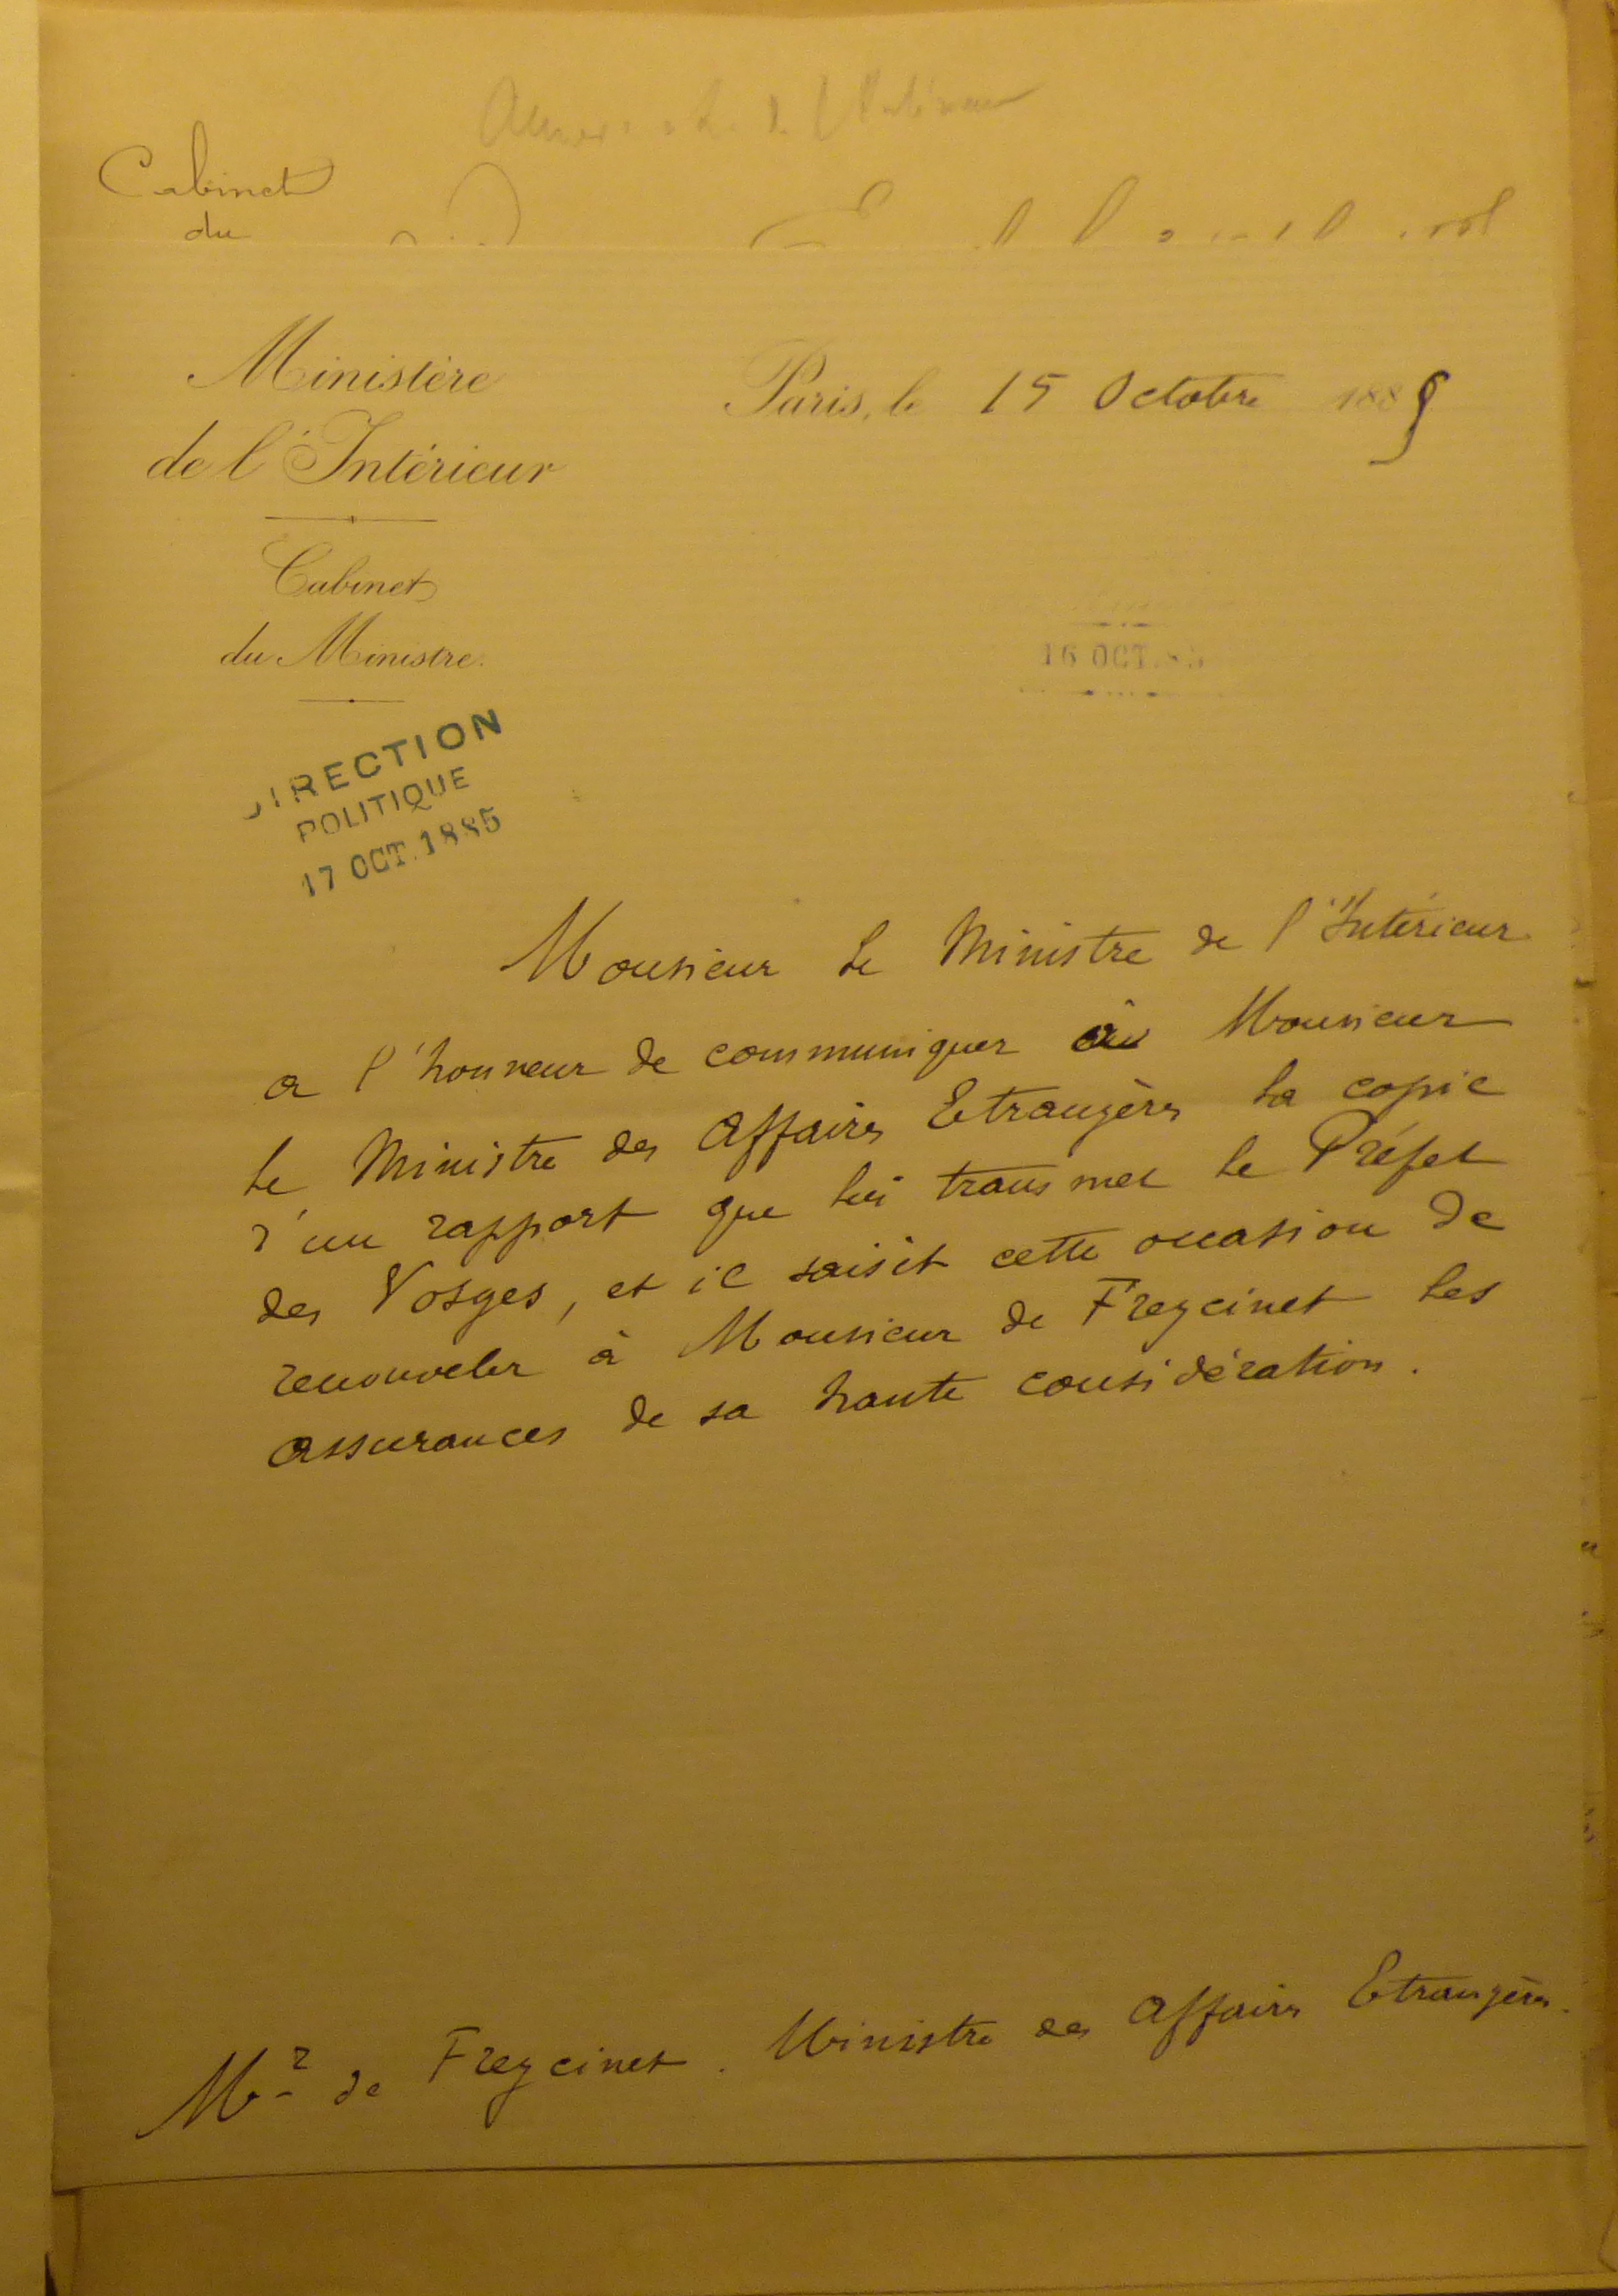 Cabinet
du
Ministère
de l'Intérieur
Paris, le 15 Octobre 1885
Cabinet
du Ministre.
16 OCT. 85
DIRECTION
POLITIQUE
17 OCT. 1885
Monsieur le Ministre de l'Intérieur
a l'honneur de communiquer à Monsieur
le Ministre des Affaires Etrangères la copie
d'un rapport que lui transmet le Préfet
des Vosges, et il saisit cette occasion de
renouveler à Monsieur de Freycinet les
assurances de sa haute considération.
Mr de Freycinet. Ministre des Affaires Etrangères.